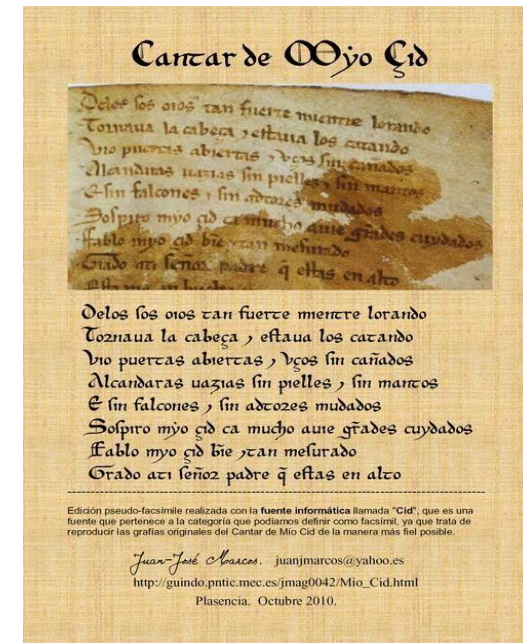 Cantar de Myo Çid
Delos sos oios tan fuerte mientre lorando
Tornaua la cabeça ⁊ estaua los catando
Vio puertas abiertas ⁊ vços sin cañados
Alcandaras uazias sin pielles ⁊ sin mantos
E sin falcones ⁊ sin adtores mudados
Sospiro myo çid ca mucho auie gr̃ades cuydados
Fablo myo çid bie tan mesurado
Grado ati señor padre q̃ estas en alto
Delos sos oios tan fuerte mientre lorando
Tornaua la cabeça ⁊ estaua los catando
Vio puertas abiertas ⁊ vços sin cañados
Alcandaras uazias sin pielles ⁊ sin mantos
E sin falcones ⁊ sin adtores mudados
Sospiro myo çid ca mucho auie gr̃ades cuydados
Fablo myo çid bĩe ⁊ tan mesurado
Grado ati señor padre q̃ estas en alto
Edición pseudo-facsímile realizada con la fuente informática llamada "Cid", que es una
fuente que pertenece a la categoría que podíamos definir como facsímil, ya que trata de
reproducir las grafías originales del Cantar de Mío Cid de la manera más fiel posible.
Juan-José Marcos. juanjmarcos@yahoo.es
http://guindo.pntic.mec.es/jmag0042/Mio_Cid.html
Plasencia. Octubre 2010.